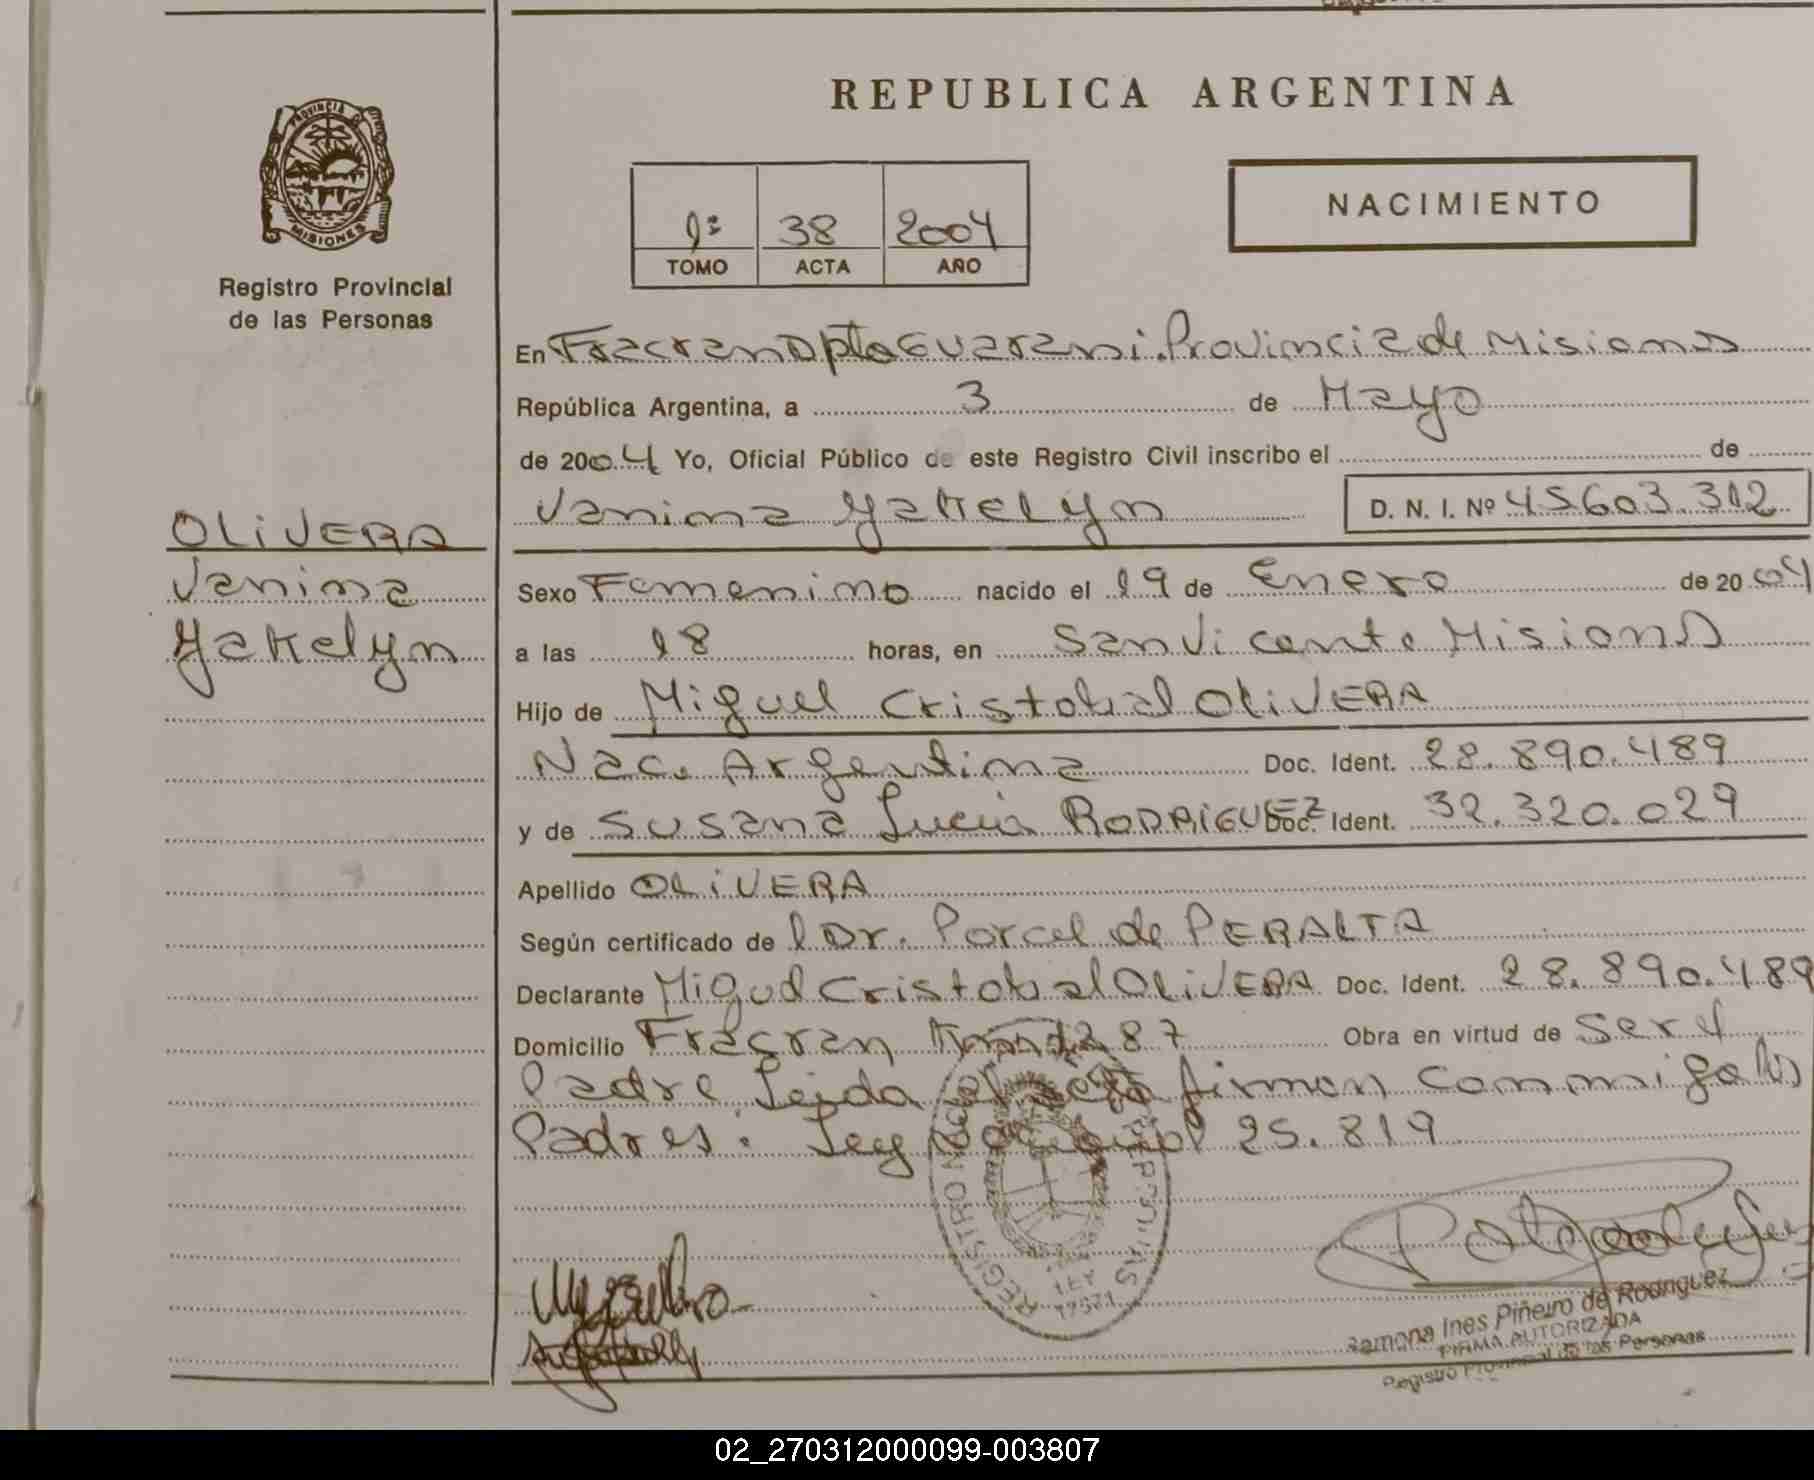 REPUBLICA ARGENTINA
PROVINCIA DE
MISIONES
Registro Provincial
de las Personas
1º 38 2004
TOMO ACTA AÑO
NACIMIENTO
En Fracran Dpto Guarani. Provincia de Misiones
República Argentina, a 3 de Mayo
de 2004 Yo, Oficial Público de este Registro Civil inscribo el de
Janina Yakelyn D. N. I. Nº 45603.312
OLiVERA
Janina
Yakelyn
Sexo Femenino nacido el 19 de Enero de 2004
a las 18 horas, en San Vicente Misiones
Hijo de Miguel Cristobal OLiVERA
Nac. Argentina Doc. Ident. 28.890.489
y de Susana Lucia RODRIGUEZ Doc. Ident. 32.320.029
Apellido OLiVERA
Según certificado de l Dr. Porcel de PERALTA
Declarante Miguel Cristobal OLiVERA Doc. Ident. 28.890.489
Domicilio Fracran 1287 Obra en virtud de ser el
Padre Leida el acta firman conmigo los
Padres. Ley Nacional 25.819
REGISTRO
LEY
17671
Ramona Ines Piñeiro de Rodriguez
FIRMA AUTORIZADA
Registro Provincial de las Personas
02_270312000099-003807